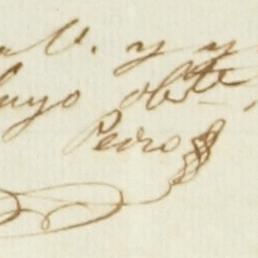 a V. y y
suyo obste
Pedro